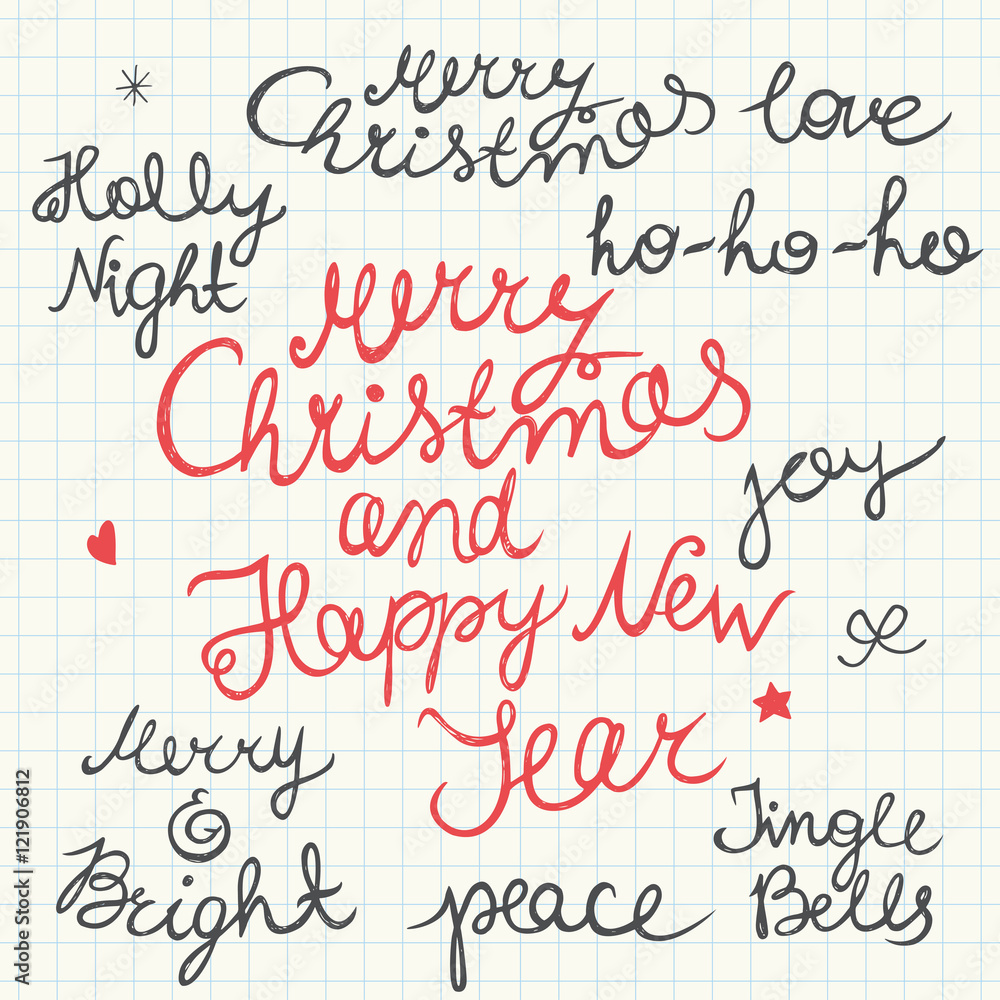 Merry
Christmas
love
Holly
Night
ho-ho-ho
Merry
Christmas
and
Happy New
Year
joy
Merry
&
Bright
peace
Jingle
Bells
Adobe Stock | #121906812